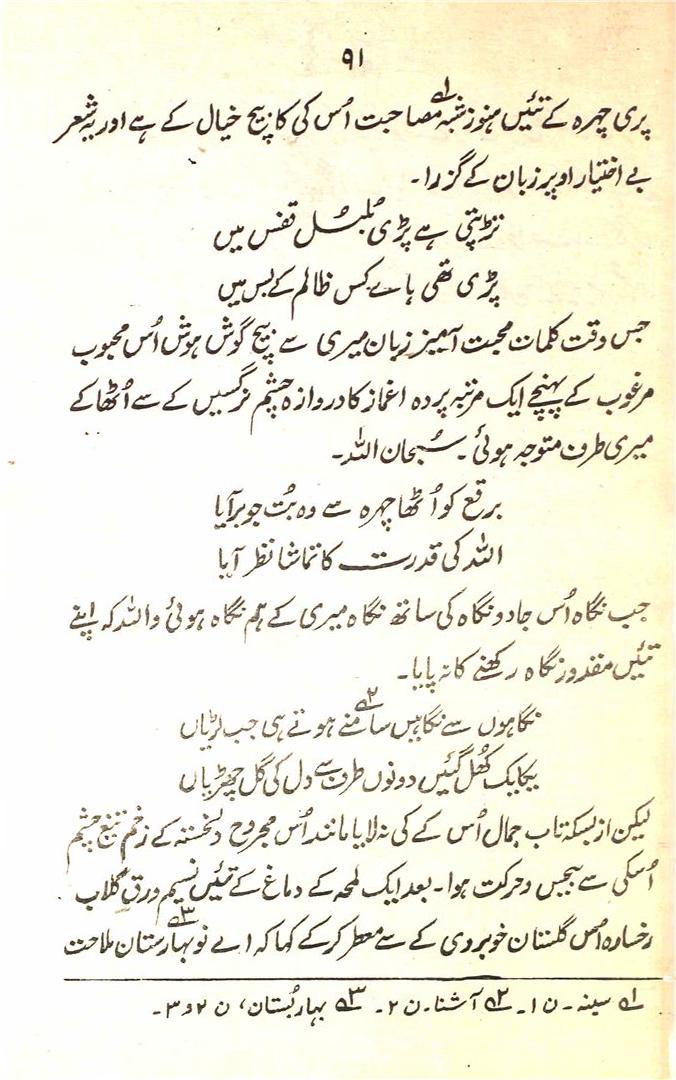 ۹۱
پری چہرہ کے تئیں ہنوز شبہ۱؎ مصاحبت اُس کی کا بیچ خیال کے ہے اور یہ شعر
بے اختیار اوپر زبان کے گزرا۔
تڑپتی ہے پڑی بُلبُل قفس میں
پڑی تھی ہائے کس ظالم کے بس میں
جس وقت کلمات محبت آمیز زبان میری سے بیچ گوش ہوش اُس محبوب
مرغوب کے پہنچے ایک مرتبہ پردہ اغماز کا دروازہ چشم نرگسیں کے سے اُٹھا کے
میری طرف متوجہ ہوئی۔ سُبحان اللہ۔
برقع کو اُٹھا چہرہ سے وہ بُت جو برآیا
اللہ کی قدرت کا تماشا نظر آیا
جب نگاہ اُس جادو نگاہ کی ساتھ نگاہ میری کے ہم نگاہ ہوئی واللہ کہ اپنے
تئیں مقدور نگاہ رکھنے کا نہ پایا۔
نگاہوں سے نگاہیں سامنے۲؎ ہوتے ہی جب لڑیاں
یکایک کھُل گئیں دونوں طرف سے دل کی گل جھڑیاں
لیکن از بسکہ تاب جمال اُس کے کی نہ لایا مانند اُس مجروح دلخستہ کے زخم تیغ چشم
اُسکی سے بیحس و حرکت ہوا۔ بعد ایک لمحہ کے دماغ کے تئیں نسیم ورقِ گلاب
رخسارہ اُس گلستان خوبروی کے سے معطر کر کے کہا کہ اے نوبہارستان۳؎ ملاحت
۱؎ سینہ۔ ن ۱۔ ۲؎ آشنا۔ ن ۲۔ ۳؎ بہارِ بُستان، ن ۲ و ۳۔